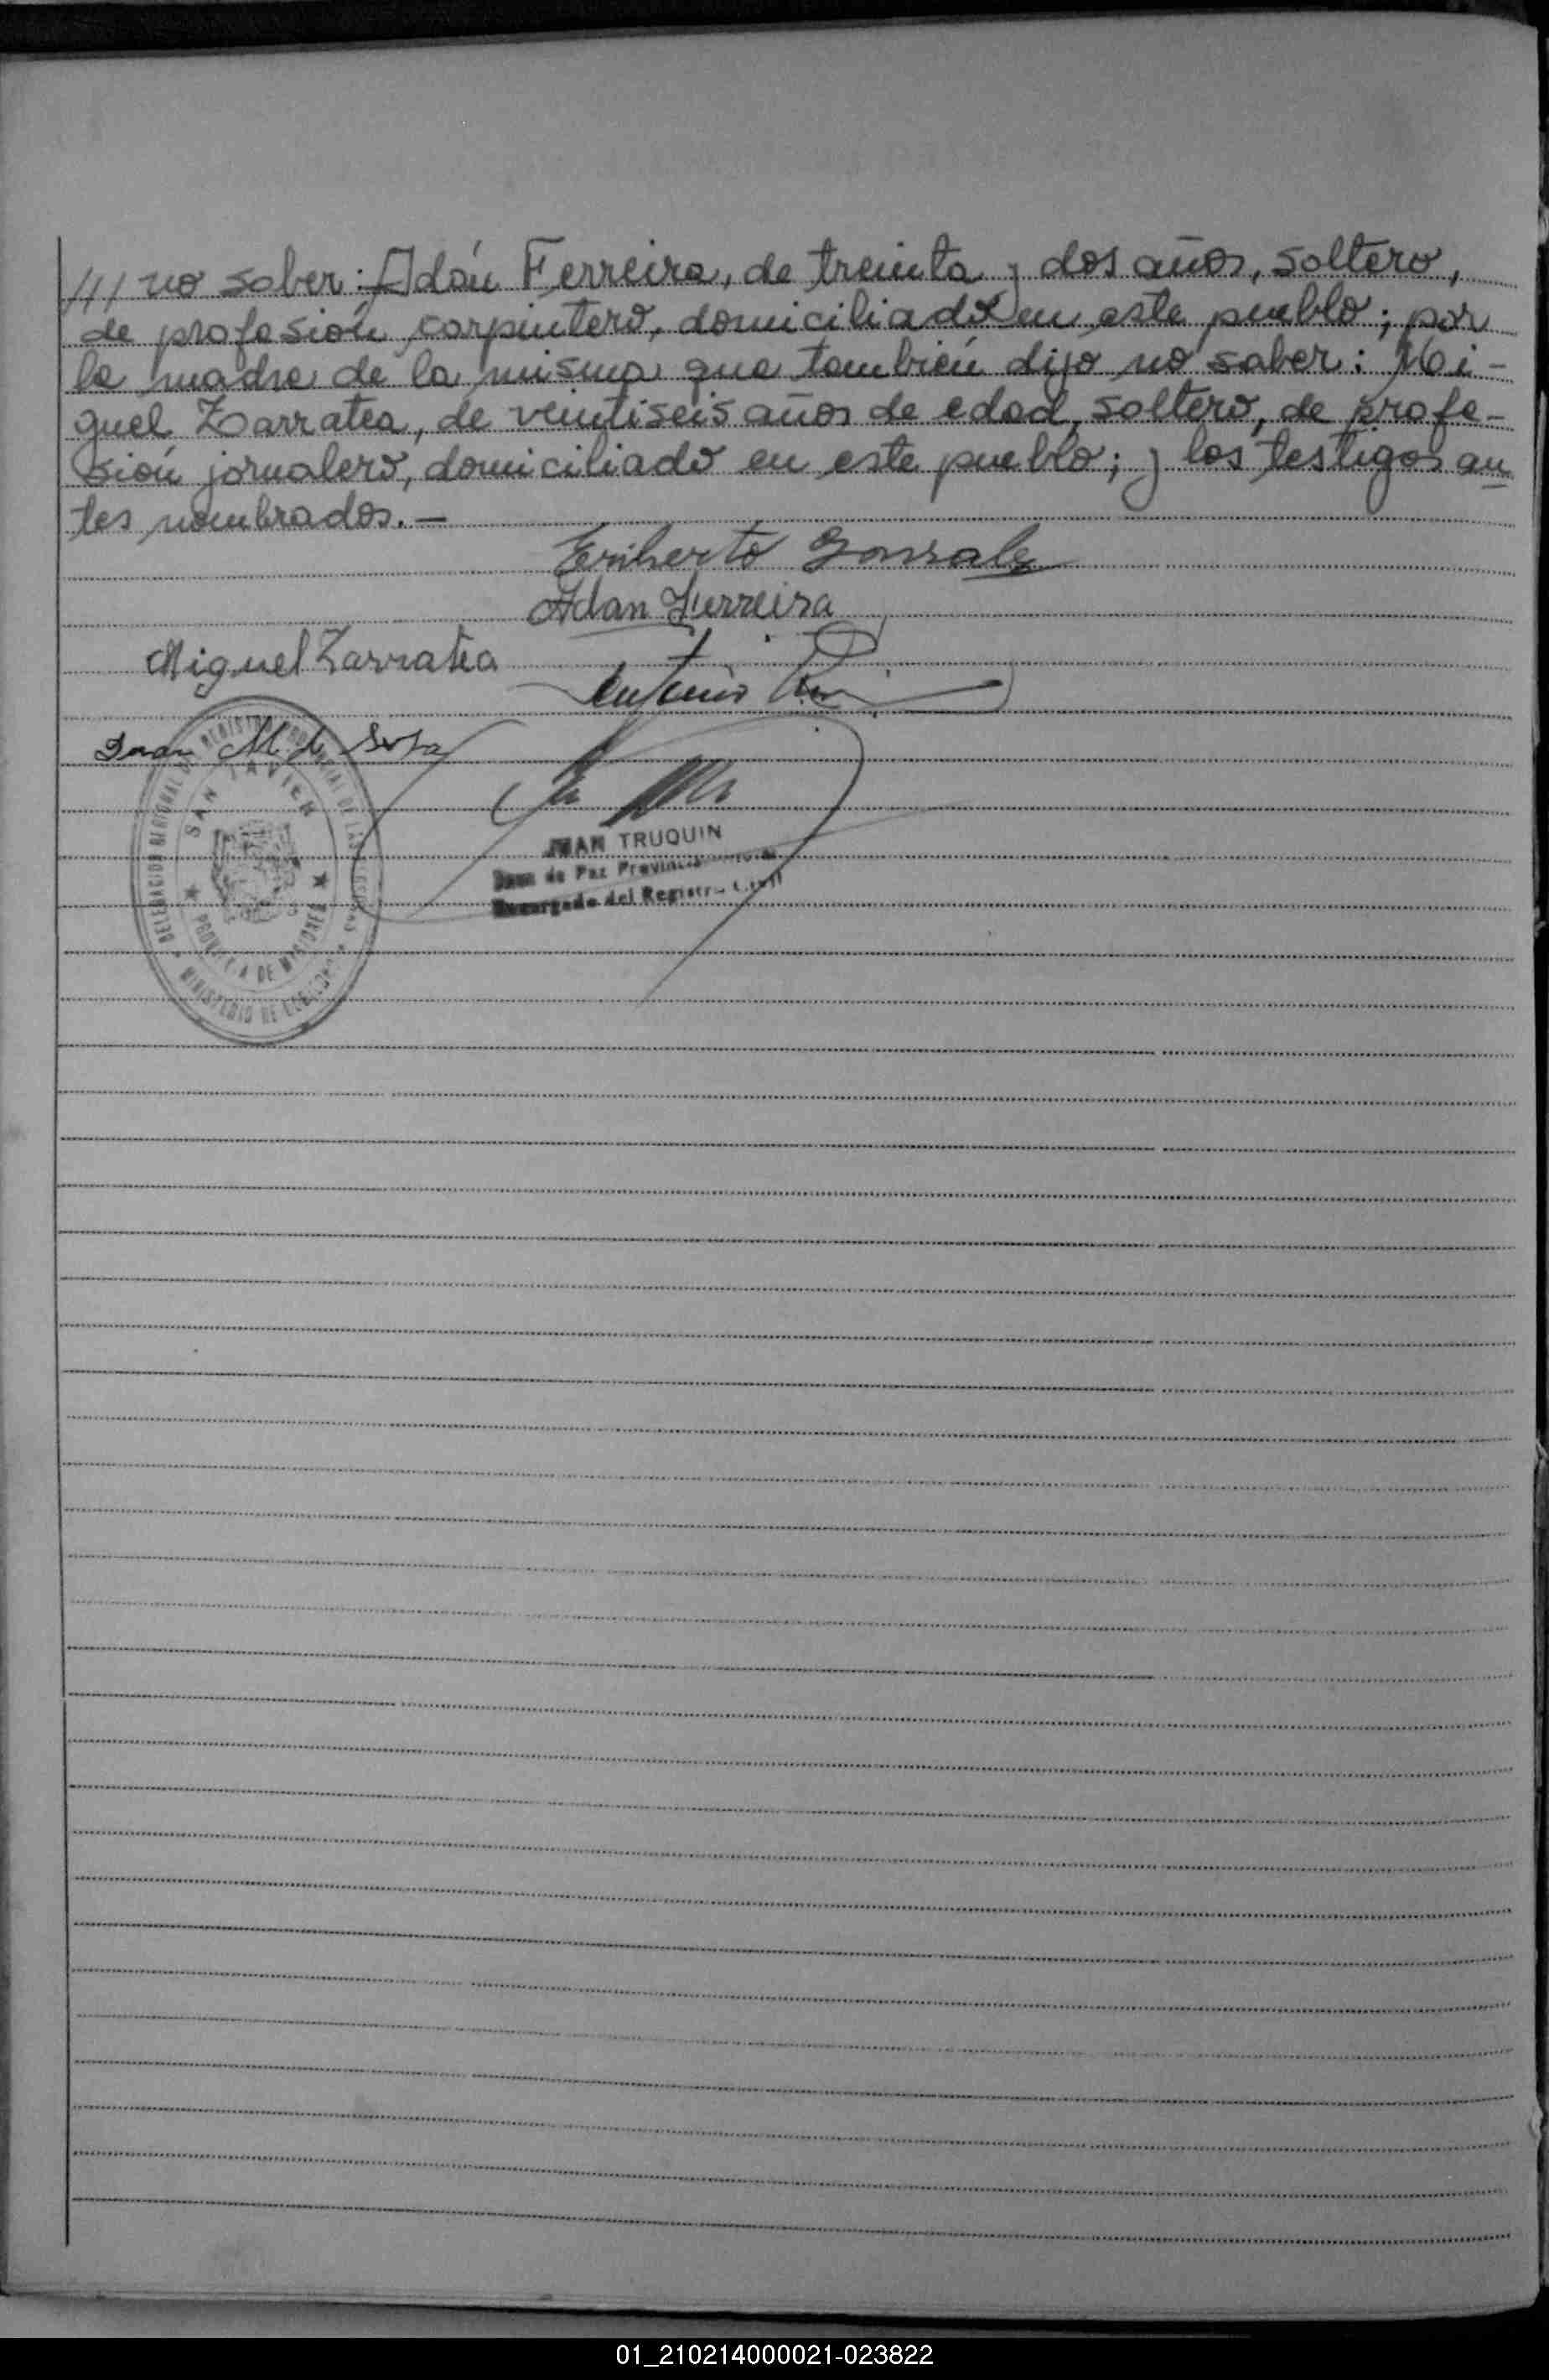 /// no saber: Adán Ferreira, de treinta y dos años, soltero,
de profesión carpintero, domiciliado en este pueblo; por
la madre de la misma que también dijo no saber: Mi-
guel Zarratea, de veintiseis años de edad, soltero, de profe-
sión jornalero, domiciliado en este pueblo; y los testigos an
tes nombrados.—
Eriberto Gonzalez
Adan Ferreira
Miguel Zarratea
Antonio
Juan M. de Sosa
SAN JAVIER
PROVINCIA DE MISIONES
JUAN TRUQUIN
Juez de Paz Provincial
Encargado del Registro Civil
01_210214000021-023822